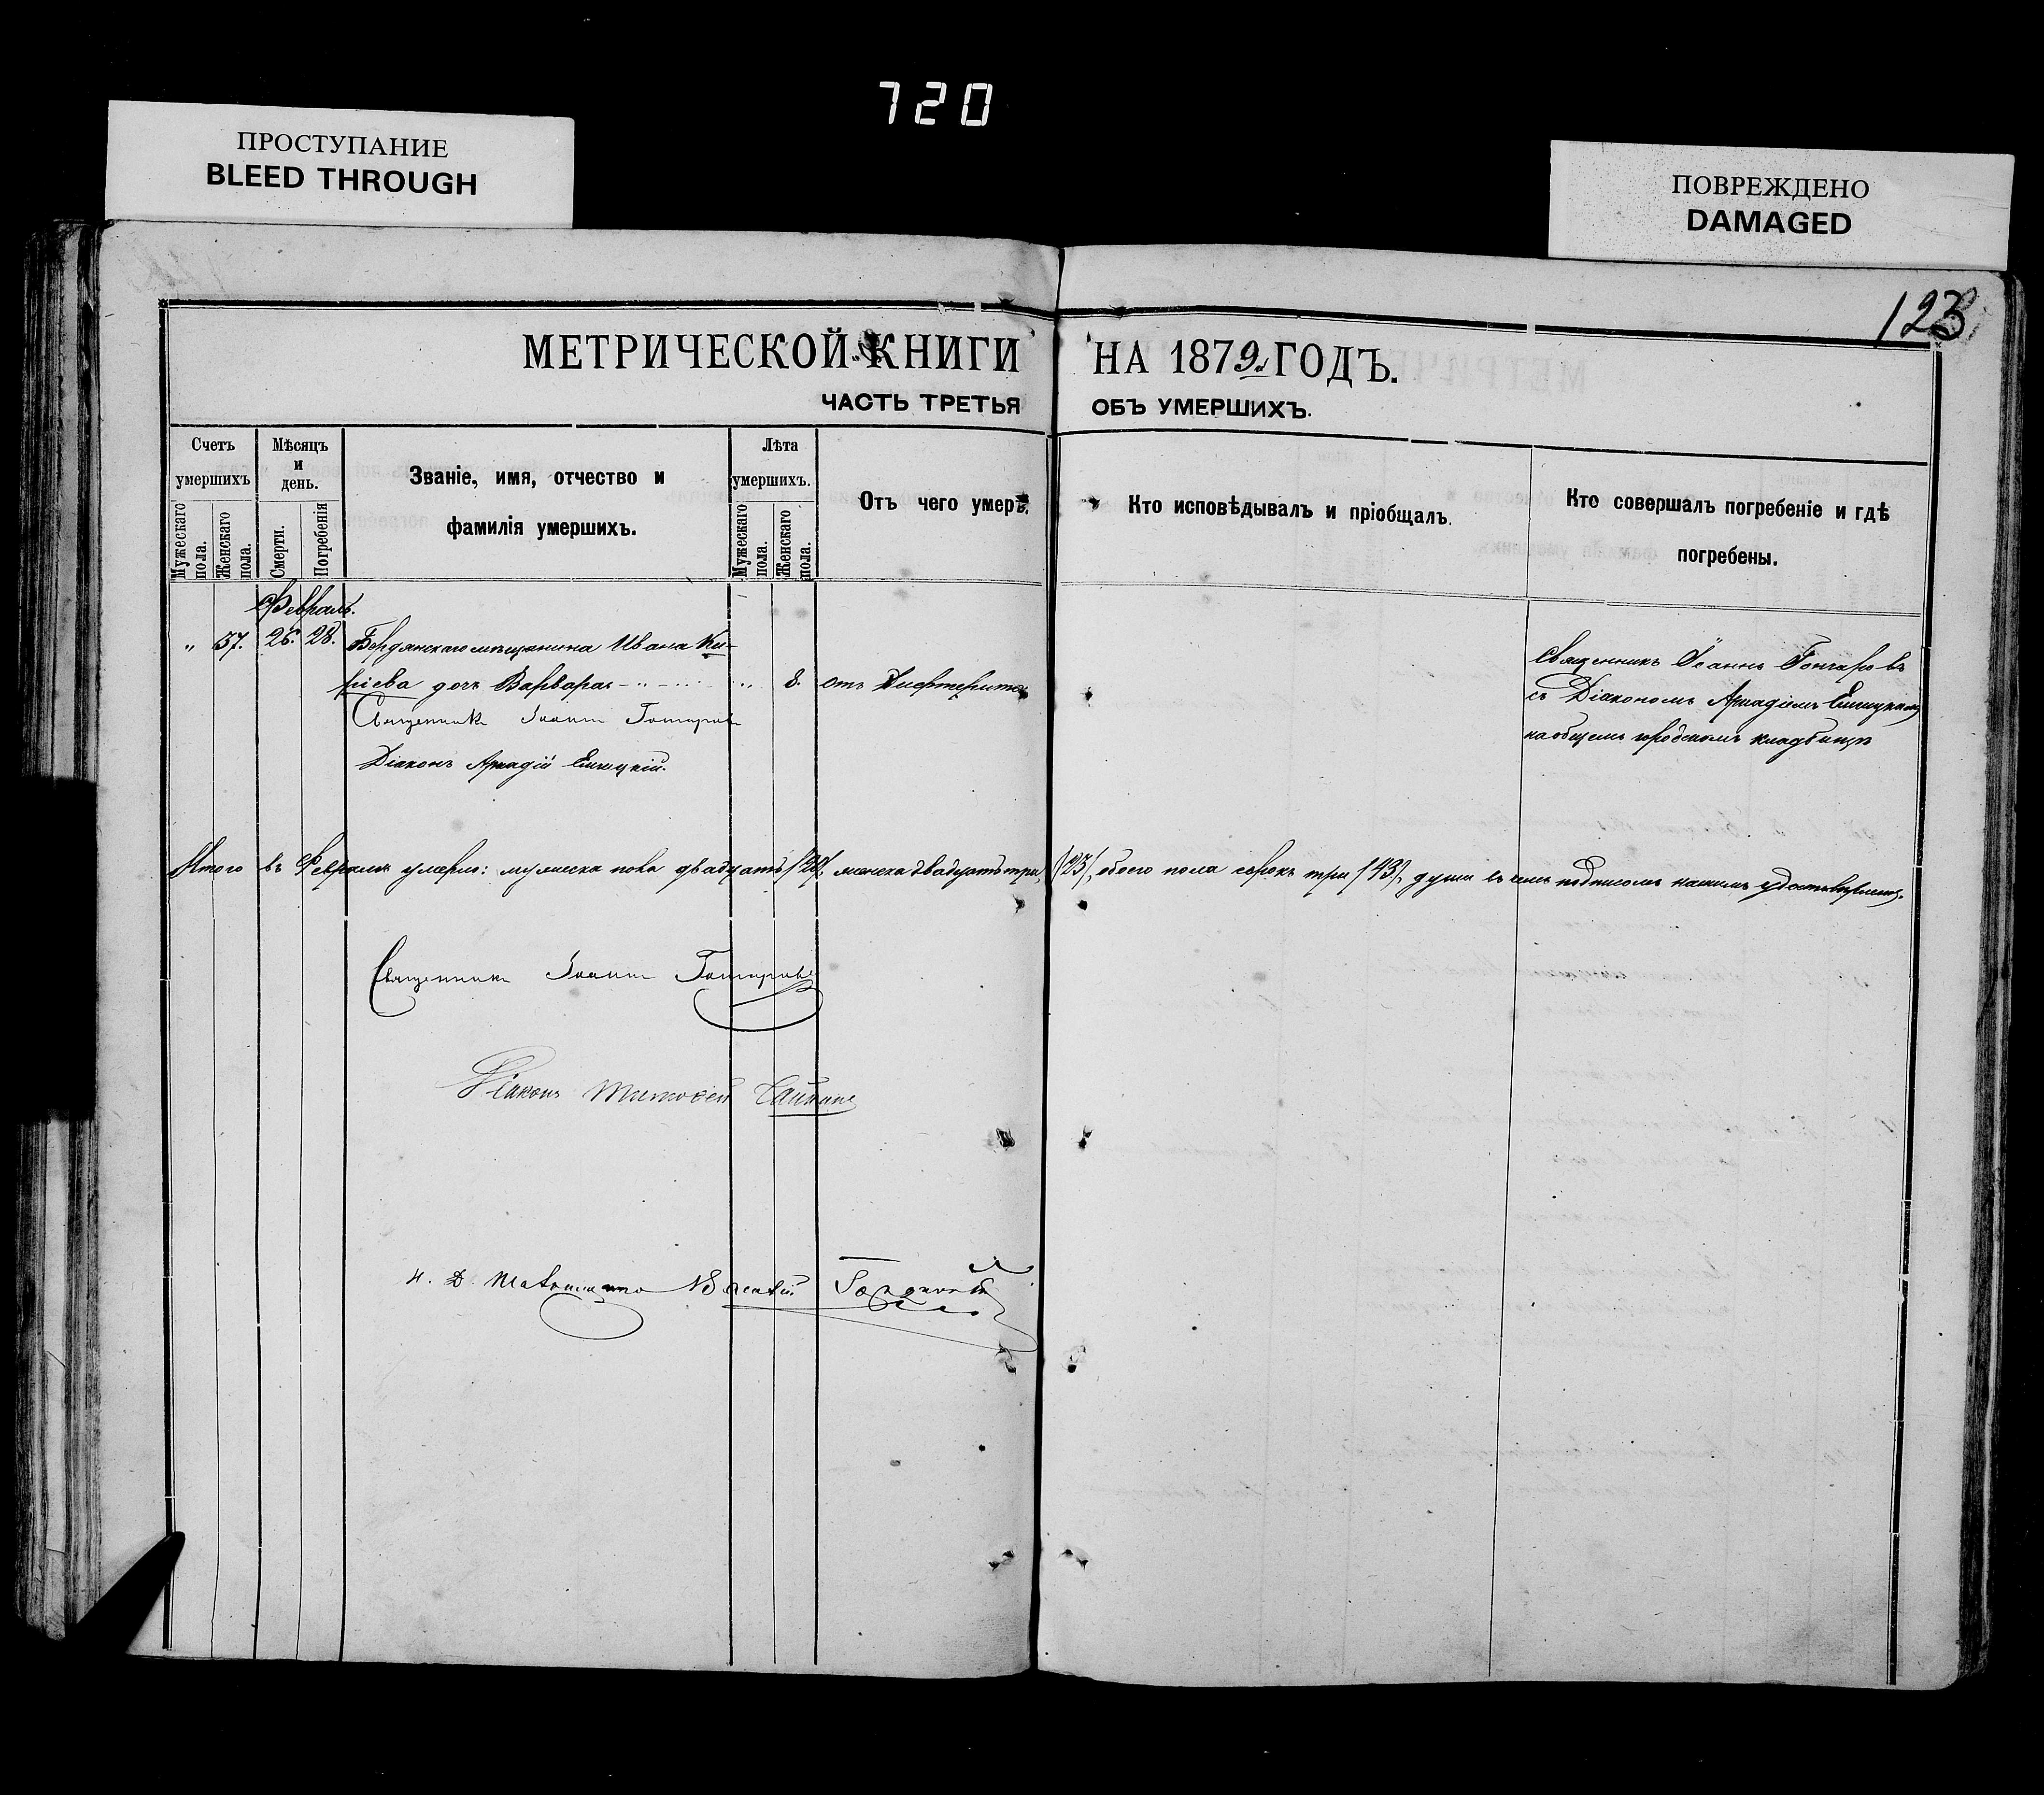 720
ПРОСТУПАНИЕ
BLEED THROUGH
ПОВРЕЖДЕНО
DAMAGED
123
МЕТРИЧЕСКОЙ КНИГИ НА 1879 ГОДЪ.
ЧАСТЬ ТРЕТЬЯ ОБЪ УМЕРШИХЪ.
Счетъ умершихъ
Мужескаго пола.
Женскаго пола.
Мѣсяцъ и день.
Смерти.
Погребенія
Званіе, имя, отчество и фамилія умершихъ.
Лѣта умершихъ.
Мужескаго пола.
Женскаго пола.
Отъ чего умеръ.
Кто исповѣдывалъ и пріобщалъ.
Кто совершалъ погребеніе и гдѣ погребены.
Февраль.
" 37. 26. 28. Бердянскаго мѣщанина Ивана Ки-
ріева дочь Варвара " 8. отъ Дифтерита
Священникъ Іоаннъ Гончаровъ
Діаконъ Аркадій
Священникъ Іоаннъ Гончаровъ
съ Діакономъ Аркадіемъ
на общемъ городскомъ кладбищѣ
Итого въ Февралѣ умерло: мужеска пола двадцать /20/, женска двадцать три /23/, обоего пола сорокъ три /43/, души въ чемъ подписомъ нашимъ удостовѣряемъ.
Священникъ Іоаннъ Гончаровъ
Діаконъ Тимофей
И. Д. Псаломщика Василій